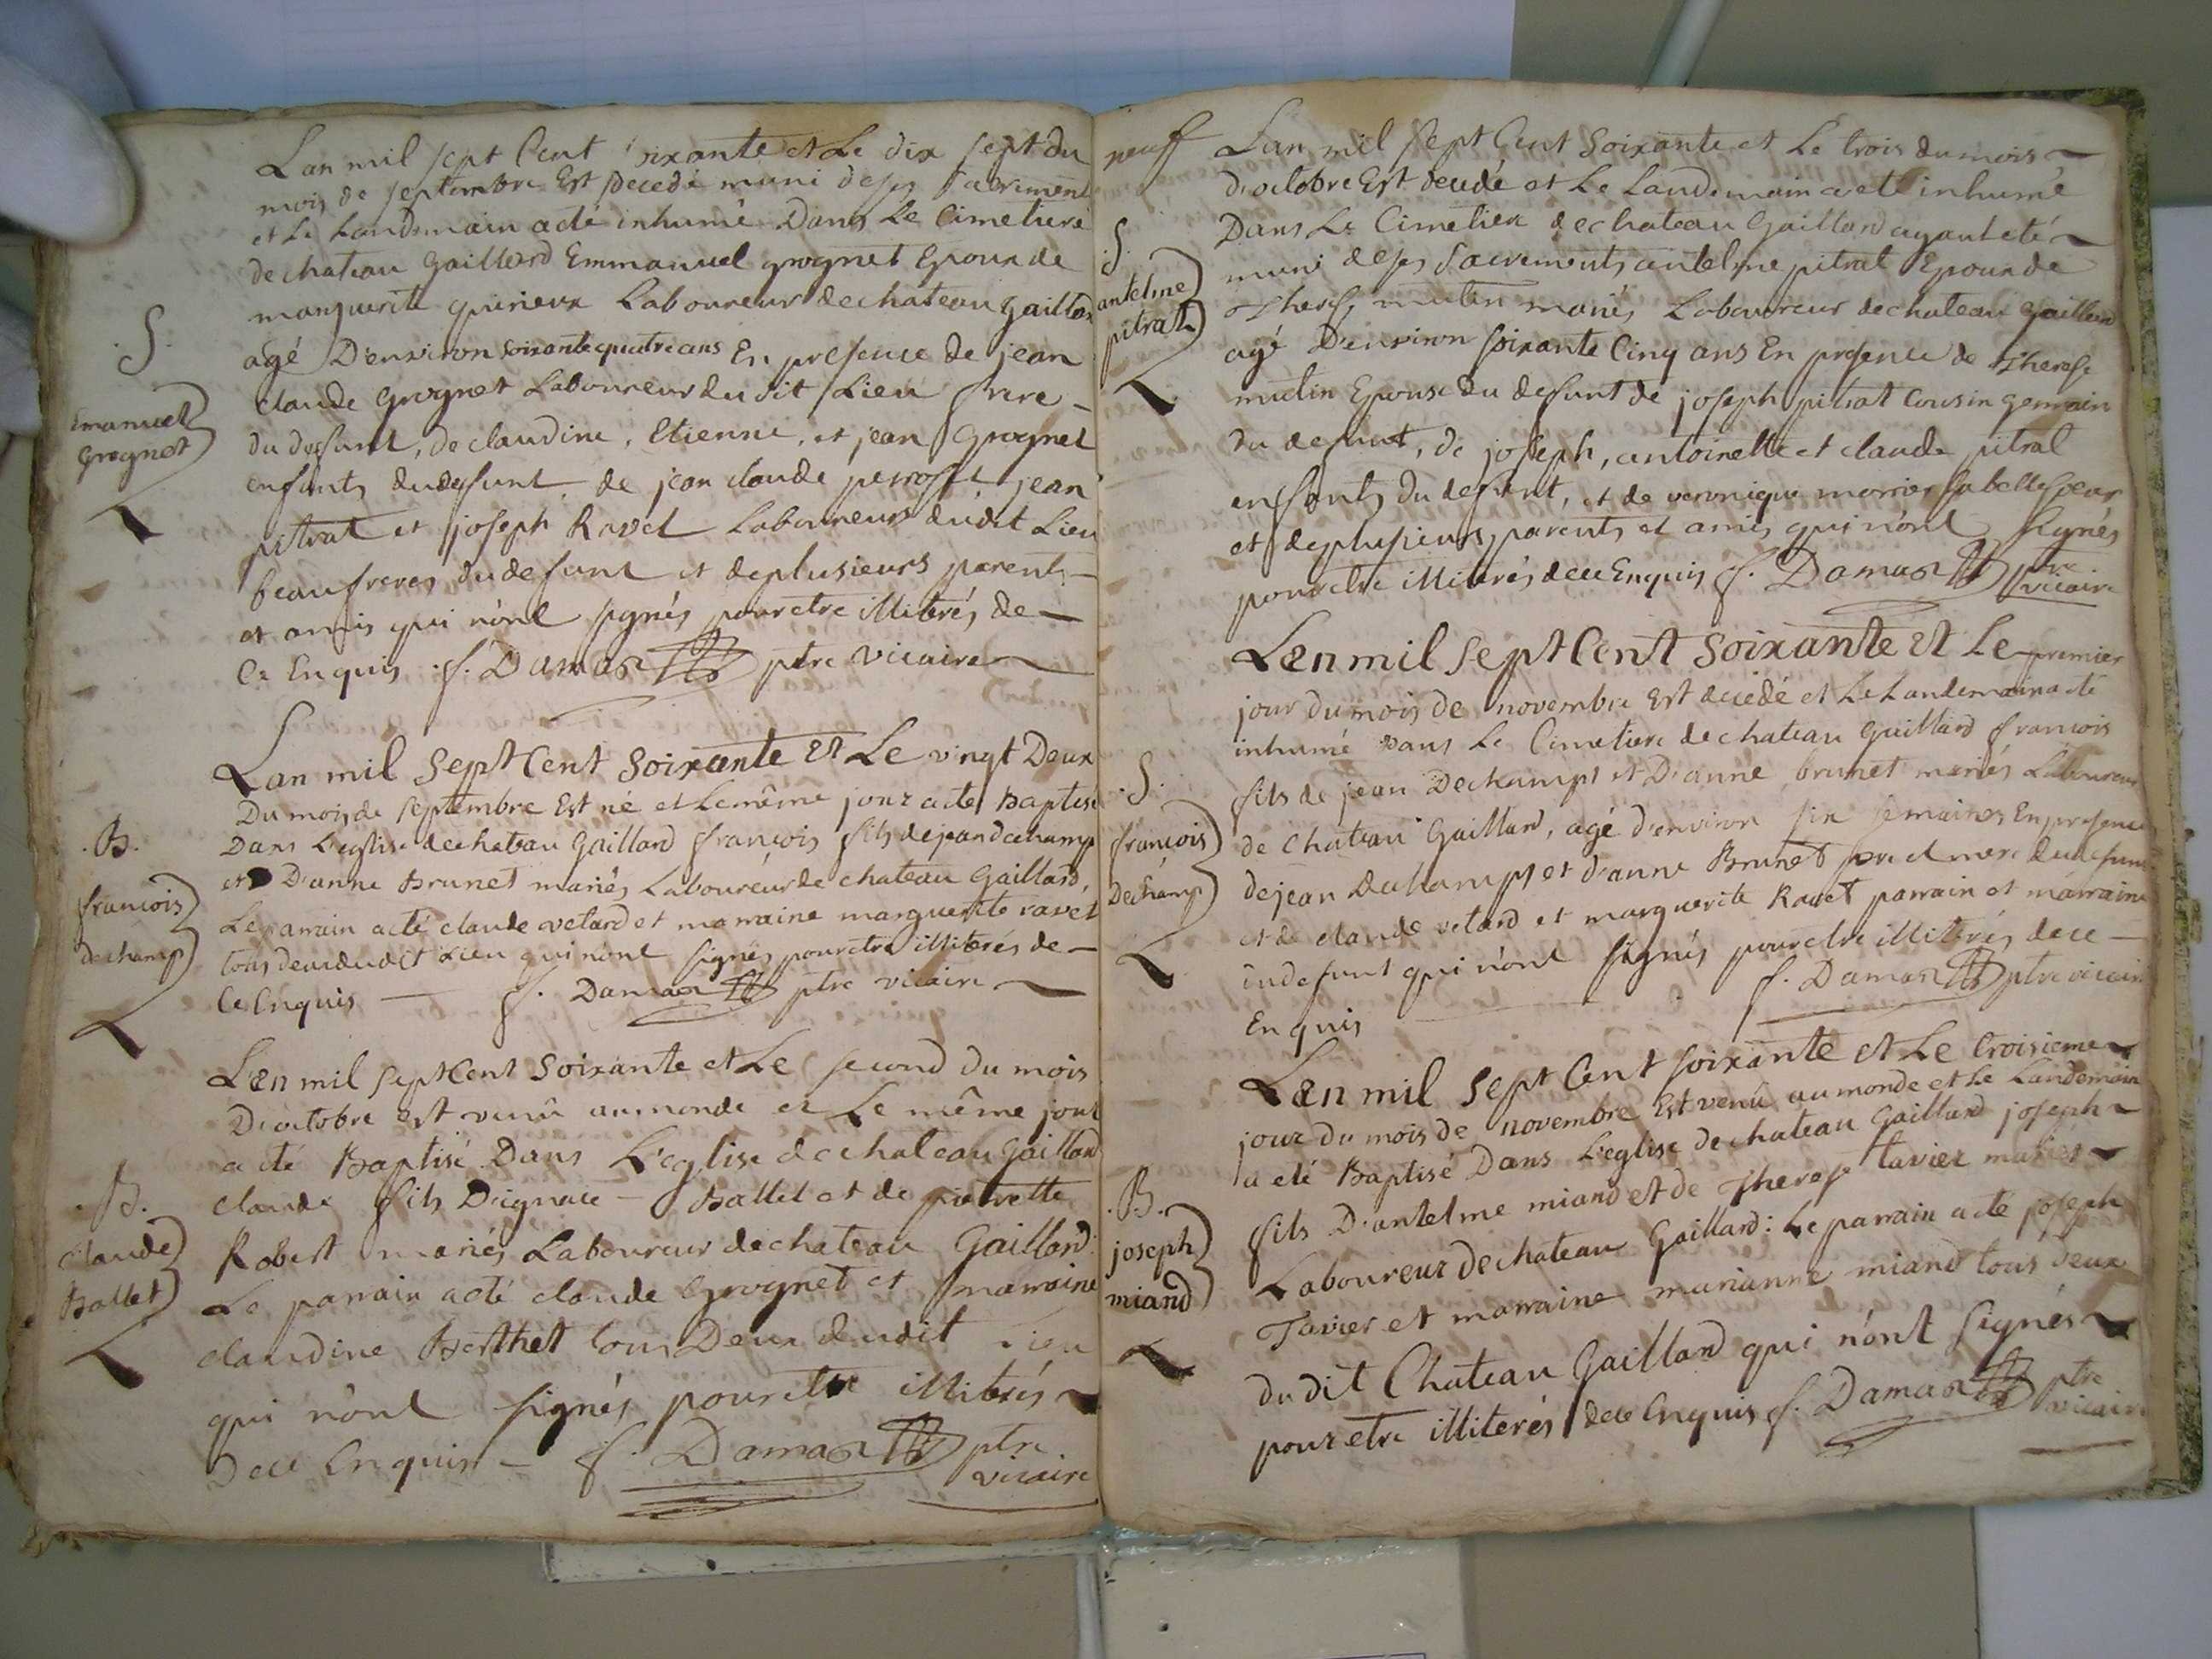 Lan mil sept Cent soixante et Le dix sept du
mois de septembre Est decedé muni deses sacrements
et Le Landemain aeté inhumé Dans Le Cimetiere
dechateau Gaillard Emmanuel grognet Epoux de
marguerite Laboureur dechateau gaillard
.S.
agé D'environ soixante quatre ans En presence de jean
claude Grognet Laboureur dudit Lieu frere
Emanuel
Grognet
du defunt, de claudine, Etienne, et jean Grognet
enfants dudefunt de jean claude perrosset jean
pitrat et joseph Ravet Laboureurs dudit Lieu
beaufreres dudefunt et deplusieurs parents
et amis qui n'ont signés pour etre illiterés de
Ce Enquis f. Damas ptre vicaire
Lan mil Sept Cent Soixante Et Le vingt Deux
Du mois de septembre Est né et Lemême jour aeté Baptisé
.B.
Dans L'eglise dechateau Gaillard françois fils dejean dechamp
et D'anne Brunet mariés Laboureur de chateau Gaillard,
françois
dechamp
Le parrain aeté claude vetard et marraine marguerite ravet
tous deux dudit Lieu qui n'ont signés pour etre illiterés de
Ce Enquis f. Damas ptre vicaire
Lan mil Sept Cent Soixante et Le second du mois
D'octobre est venû aumonde et Le même jour
a eté Baptisé Dans L'eglise dechateau Gaillard
.B.
claude fils D'ignace Ballet et de pierrette
claude
Ballet
Robert mariés Laboureur dechateau Gaillard:
Le parrain aeté claude Grognet et marraine
claudine Berthet tous Deux dudit Lieu
qui n'ont signés pour etre illiterés
Dece Enquis f. Damas ptre
vicaire
neuf
Lan mil Sept Cent Soixante et Le trois du mois
d'octobre Est decedé et Le Landemain a eté inhumé
Dans Le Cimetiere dechateau Gaillard ayant eté
.S.
muni deses Sacrements antelme pitrat Epoux de
antelme
pitrat
Therese mutin mariés Laboureur dechateau Gaillard
agé D'environ soixante Cinq ans En presence de Therese
mutin Epouse du defunt de joseph pitrat Cousin germain
du defunt, de joseph, antoinette et claude pitrat
enfants du defunt, et de veronique sa belle soeur
et deplusieurs parents et amis qui n'ont signés
pour etre illiterés dece Enquis f. Damas ptre
vicaire
Lan mil Sept Cent Soixante Et Le premier
jour du mois de novembre Est decedé et Le Landemain aeté
inhumé dans Le Cimetiere dechateau Gaillard françois
.S.
fils de jean Dechamps et D'anne brunet mariés Laboureur
françois
Dechamp
de chateau Gaillard, agé d'environ six semaines En presence
dejean Dechamps et d'anne Brunet pere et mere dudefunt
et de claude vetard et marguerite Ravet parrain et marraine
dudefunt qui n'ont signés pour etre illiterés dece
Enquis f. Damas ptre vicaire
Lan mil Sept Cent soixante et Le troisieme
jour du mois de novembre Est venû au monde et Le Landemain
a eté Baptisé Dans L'eglise dechateau Gaillard joseph
.B.
fils D'antelme miand et de Therese tavier mariés
joseph
miand
Laboureur dechateau Gaillard: Le parrain aeté joseph
Tavier et marraine marianne miand tous deux
du dit Chateau Gaillard qui n'ont signés
pour etre illiterés dece Enquis f. Damas ptre
vicaire